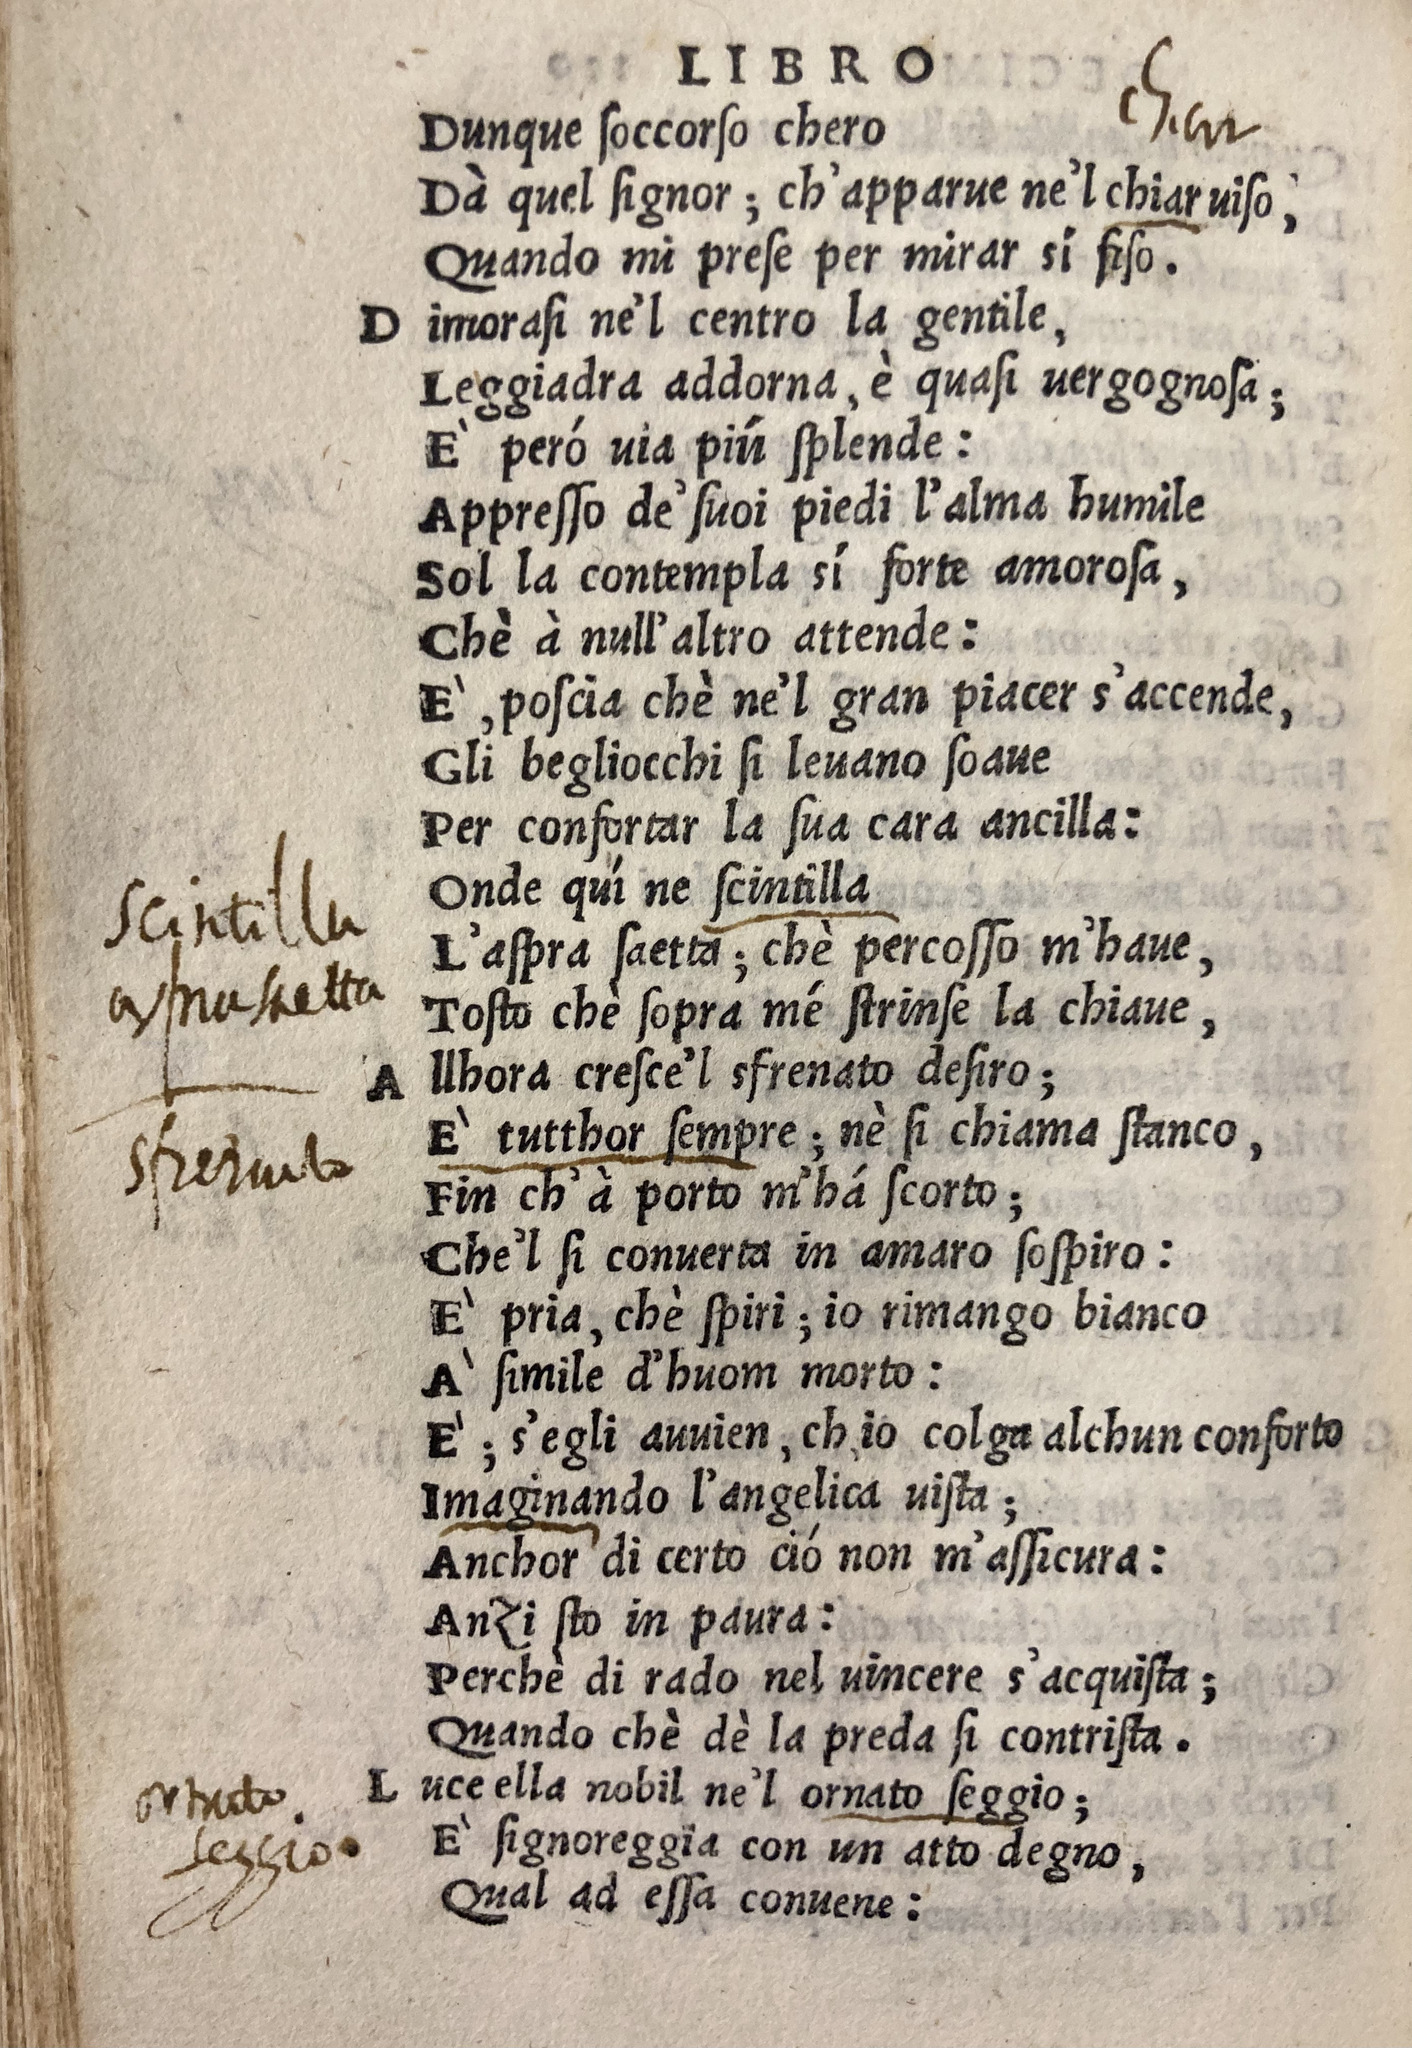 LIBRO
chiar
Dunque ſoccorſo chero
Dà quel ſignor; ch'apparue ne'l chiar uiſo,
Quando mi preſe per mirar sí fiſo.
D imoraſi ne'l centro la gentile,
Leggiadra addorna, è quaſi uergognoſa;
E` peró uia piú ſplende:
Appreſſo de' ſuoi piedi l'alma humile
Sol la contempla sí forte amoroſa,
Chè à null'altro attende:
E`, poſcia chè ne'l gran piacer s'accende,
Gli begliocchi ſi leuano ſoaue
Per confortar la ſua cara ancilla:
Onde quí ne ſcintilla
scintilla
L'aſpra ſaetta; chè percoſſo m'haue,
aspra saetta
Toſto chè ſopra mé ſtrinſe la chiaue,
A llhora creſce'l sfrenato deſiro;
E` tutthor ſempre; nè ſi chiama ſtanco,
sfrenato
Fin ch'à porto m'há ſcorto;
Che'l ſi conuerta in amaro ſoſpiro:
E` pria, chè ſpiri; io rimango bianco
A` ſimile d'huom morto:
E`; s'egli auuien, ch io colga alchun conforto
Imaginando l'angelica uiſta;
Anchor di certo ció non m'aſſicura:
Anzi ſto in paura:
Perchè di rado nel uincere s'acquiſta;
Quando chè dè la preda ſi contriſta.
L uce ella nobil ne'l ornato ſeggio;
ornato
E` ſignoreggia con un atto degno,
seggio.
Qual ad eſſa conuene: